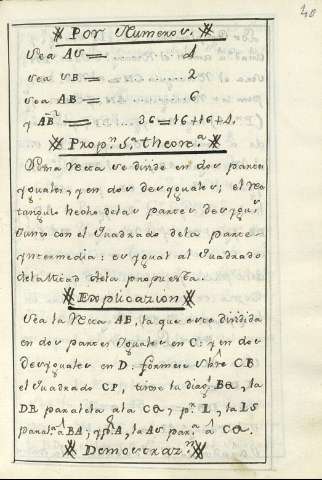 48
Por Numeros.
Sea AS = 4
sea SB = 2
sea AB = 6
y AB = 36 = 16 + 16 + 4.
Propn. 5a. theora.
Si una recta se divide en dos partes
yguales, y en dos desyguales; el rec
tangulo hecho delas partes desygus.
junto con el Quadrado dela parte
yntermedia: es ygual al Quadrado
dela mitad dela propuesta.
Explicazion
Sea la recta AB, la que esté dividida
en dos partes yguales en C: y en dos
desyguales en D. formese sbre CB
el Quadrado CP, tirese su diagl. BQ, la
DR paralela ala CQ; pr. L, la IS
parala. â BA; y pr. A, la AS para. â CQ.
Demostrazn.